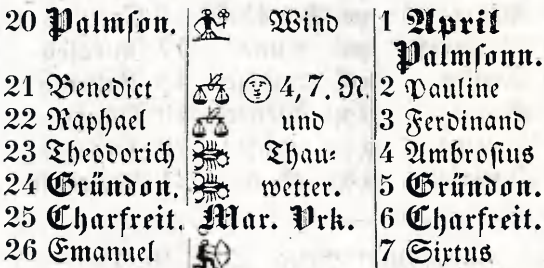 20 Palmſon. Wind 1 April
Palmſonn.
21 Benedict 4, 7. N. 2 Pauline
22 Raphael und 3 Ferdinand
23 Theodorich Thau⸗ 4 Ambroſius
24 Gründon. wetter. 5 Gründon.
25 Charfreit. Mar. Vrk. 6 Charfreit.
26 Emanuel 7 Sixtus